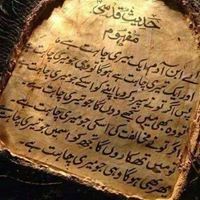 حدیث قدسی
مفہوم
اے ابن آدم ایک تیری چاہت ہے
اور ایک میری چاہت ہے ہوگا وہی جو میری چاہت ہے
پس اگر تو نے سپرد کر دیا اپنے کو اسکے جو میری چاہت ہے
تو وہ بھی میں تجھے دوں گا جو تیری چاہت ہے
اگر تو نے مخالفت کی اسکی جو میری چاہت ہے
تو میں تھکا دوں گا تجھ کو اسمیں جو تیری چاہت ہے
پھر ہوگا وہی جو میری چاہت ہے